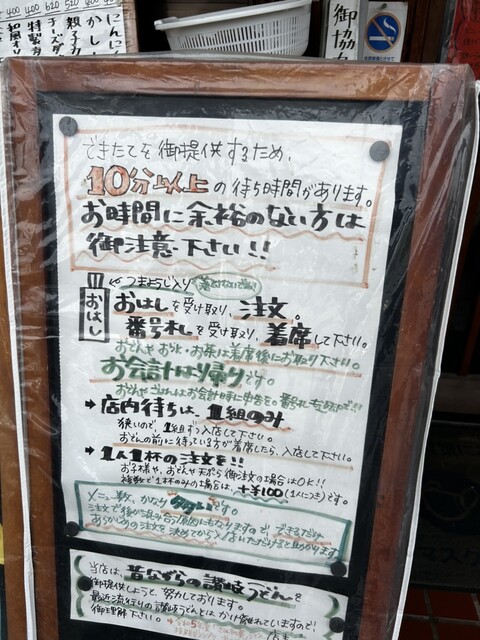 400
400
620
520
400
にんにく
かし
親子
チーズ
特製
和風
御協力
できたてを御提供するため、
10分以上の待ち時間があります。
お時間に余裕のない方は
御注意下さい!!
おはし
つまようじ入り
おはしを受け取り、注文。
番号札を受け取り、着席して下さい。
おでんやおひや・お茶は着席後にお取り下さい。
お会計は帰りです。
→店内待ちは、1組のみ
狭いので、1組ずつ入店して下さい。
おでんの前に待っている方が着席したら、入店して下さい。
→1人1杯の注文を!!
お子様や、おでんや天ぷら御注文の場合はOK!!
複数で1杯のみの場合は、+¥100(1人につき)です。
メニュー数、かなり多いです。
注文で後が混み合う原因にもなりますので、できるだけ
あらかじめ注文を決めてから入店いただけると助かります
当店は、昔ながらの讃岐うどんを
御提供しようと、努力しております。
最近流行りの讃岐うどんとはかけ離れていますので!
御理解下さい。
店主